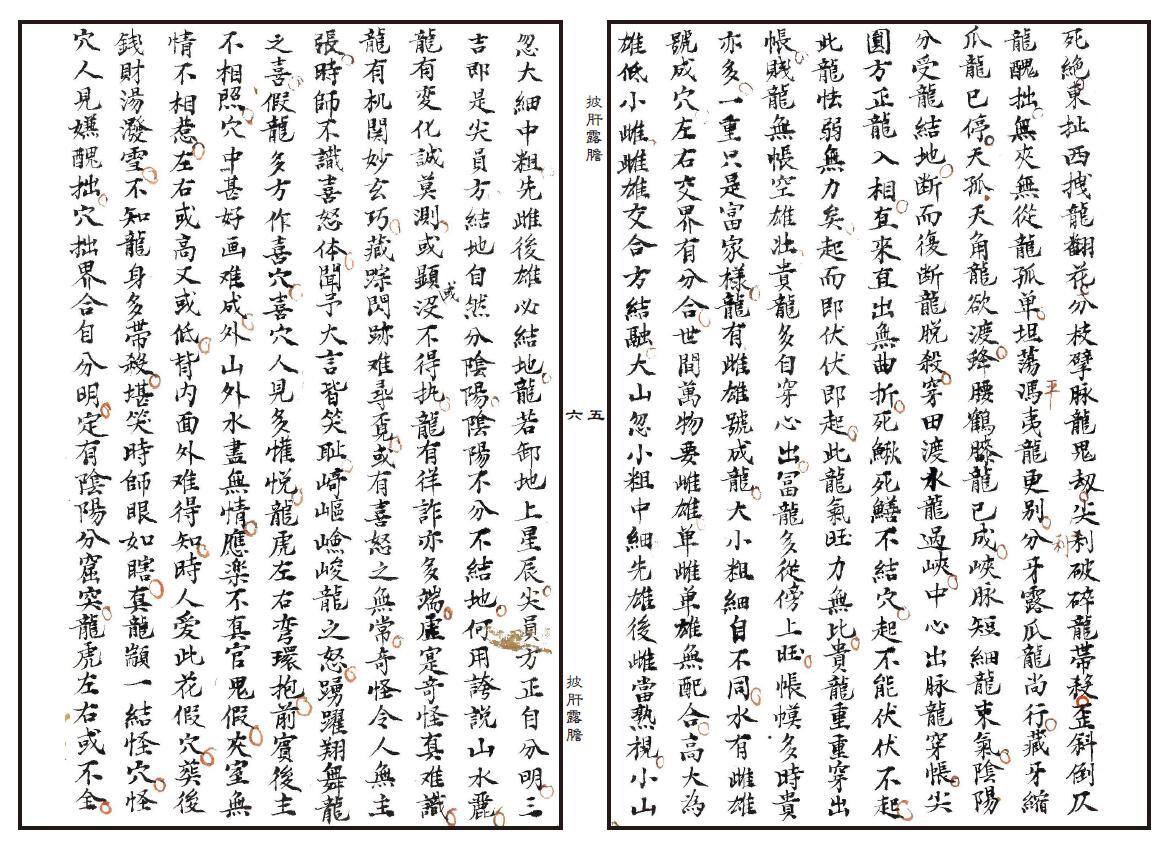 死絶東扯西拽龍翻花分枝擘脉龍鬼刼尖利破碎龍帶殺歪斜倒仄
龍醜拙無夾無從龍孤单坦荡馮夷龍更别分牙露爪龍尚行藏牙縮
爪龍已停天孤天角龍欲渡蜂腰鶴膝龍已成峽脉短細龍束氣陰陽
分受龍結地断而復断龍脱殺穿田渡水龍過峽中心出脉龍穿帳尖
圓方正龍入相直来直出無曲折死鰍死鱔不結穴起不能伏伏不起
此龍怯弱無力矣起而即伏伏即起此龍氣旺力無比貴龍重重穿出
帳賤龍無帳空雄壮貴龍多自穿心出冨龍多從傍上旺帳幙多時貴
亦多一重只是富家樣龍有雌雄號成龍大小粗細自不同水有雌雄
號成穴左右交界有分合世間萬物要雌雄单雌单雄無配合高大為
雄低小雌雌雄交合方結融大山忽小粗中細先雄後雌當熟視小山
披肝露膽
五
六
披肝露膽
忽大細中粗先雌後雄必結地龍若卸地上星辰尖員方正自分明三
吉即是尖員方結地自然分陰陽陰陽不分不結地何用誇説山水麗
龍有変化誠莫測或顕或没不得执龍有徉詐亦多端虚寔奇怪真难識
龍有机関妙玄巧藏踪閃跡难尋覓或有喜怒之無常奇怪令人無主
張時師不識喜怒体聞予大言皆笑耻﨑嶇嶮峻龍之怒踴躍翔舞龍
之喜假龍多方作喜穴喜穴人見多懽悦龍虎左右弯環抱前賓後主
不相照穴中甚好画难成外山外水盡無情應楽不真官鬼假夾室無
情不相惹左右或高又或低背内面外难得知時人愛此花假穴葬後
銭財湯潑雪不知龍身多帶殺堪笑時師眼如瞎真龍巔一結怪穴怪
穴人見嫌醜拙穴拙界合自分明定有陰陽分窟突龍虎左右或不全